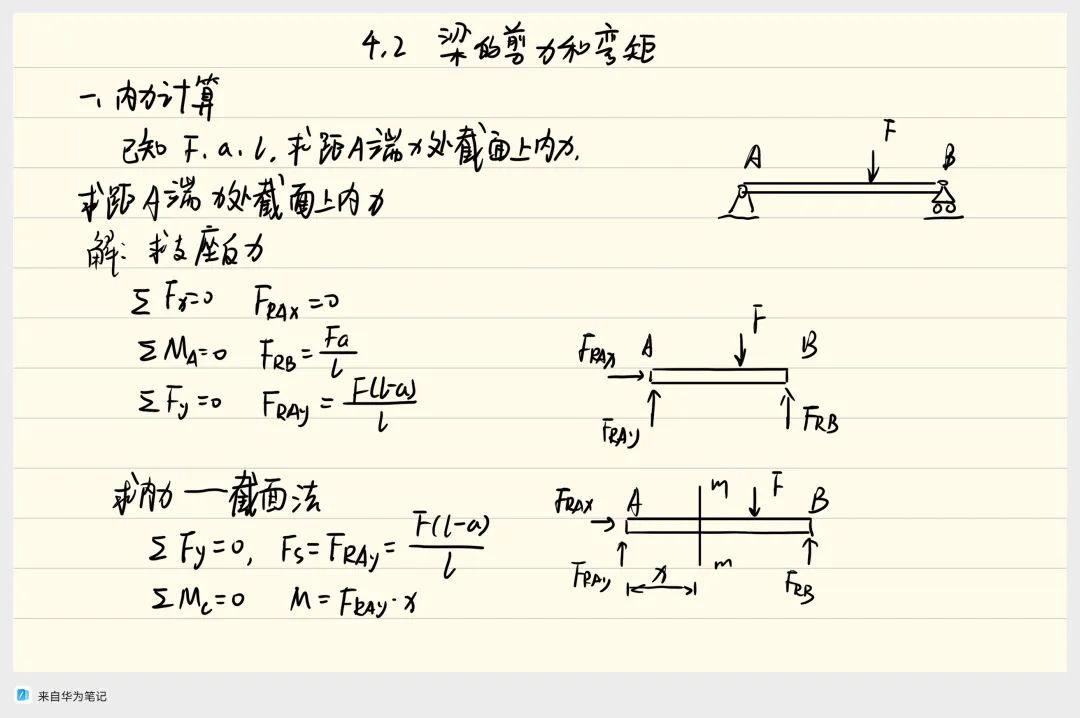 4.2 梁的剪力和弯矩
一、内力计算
已知 F、a、l,求距A端x处截面上内力.
求距A端x处截面上内力
解:求支座反力
ΣFx=0 FRAx=0
ΣMA=0 FRB=Fa/l
ΣFy=0 FRAy=F(l-a)/l
求内力——截面法
ΣFy=0, Fs=FRAy=F(l-a)/l
ΣMc=0 M=FRAy·x
A F B
FRAx A F B
FRAy FRB
FRAx A m F B
FRAy x m FRB
来自华为笔记